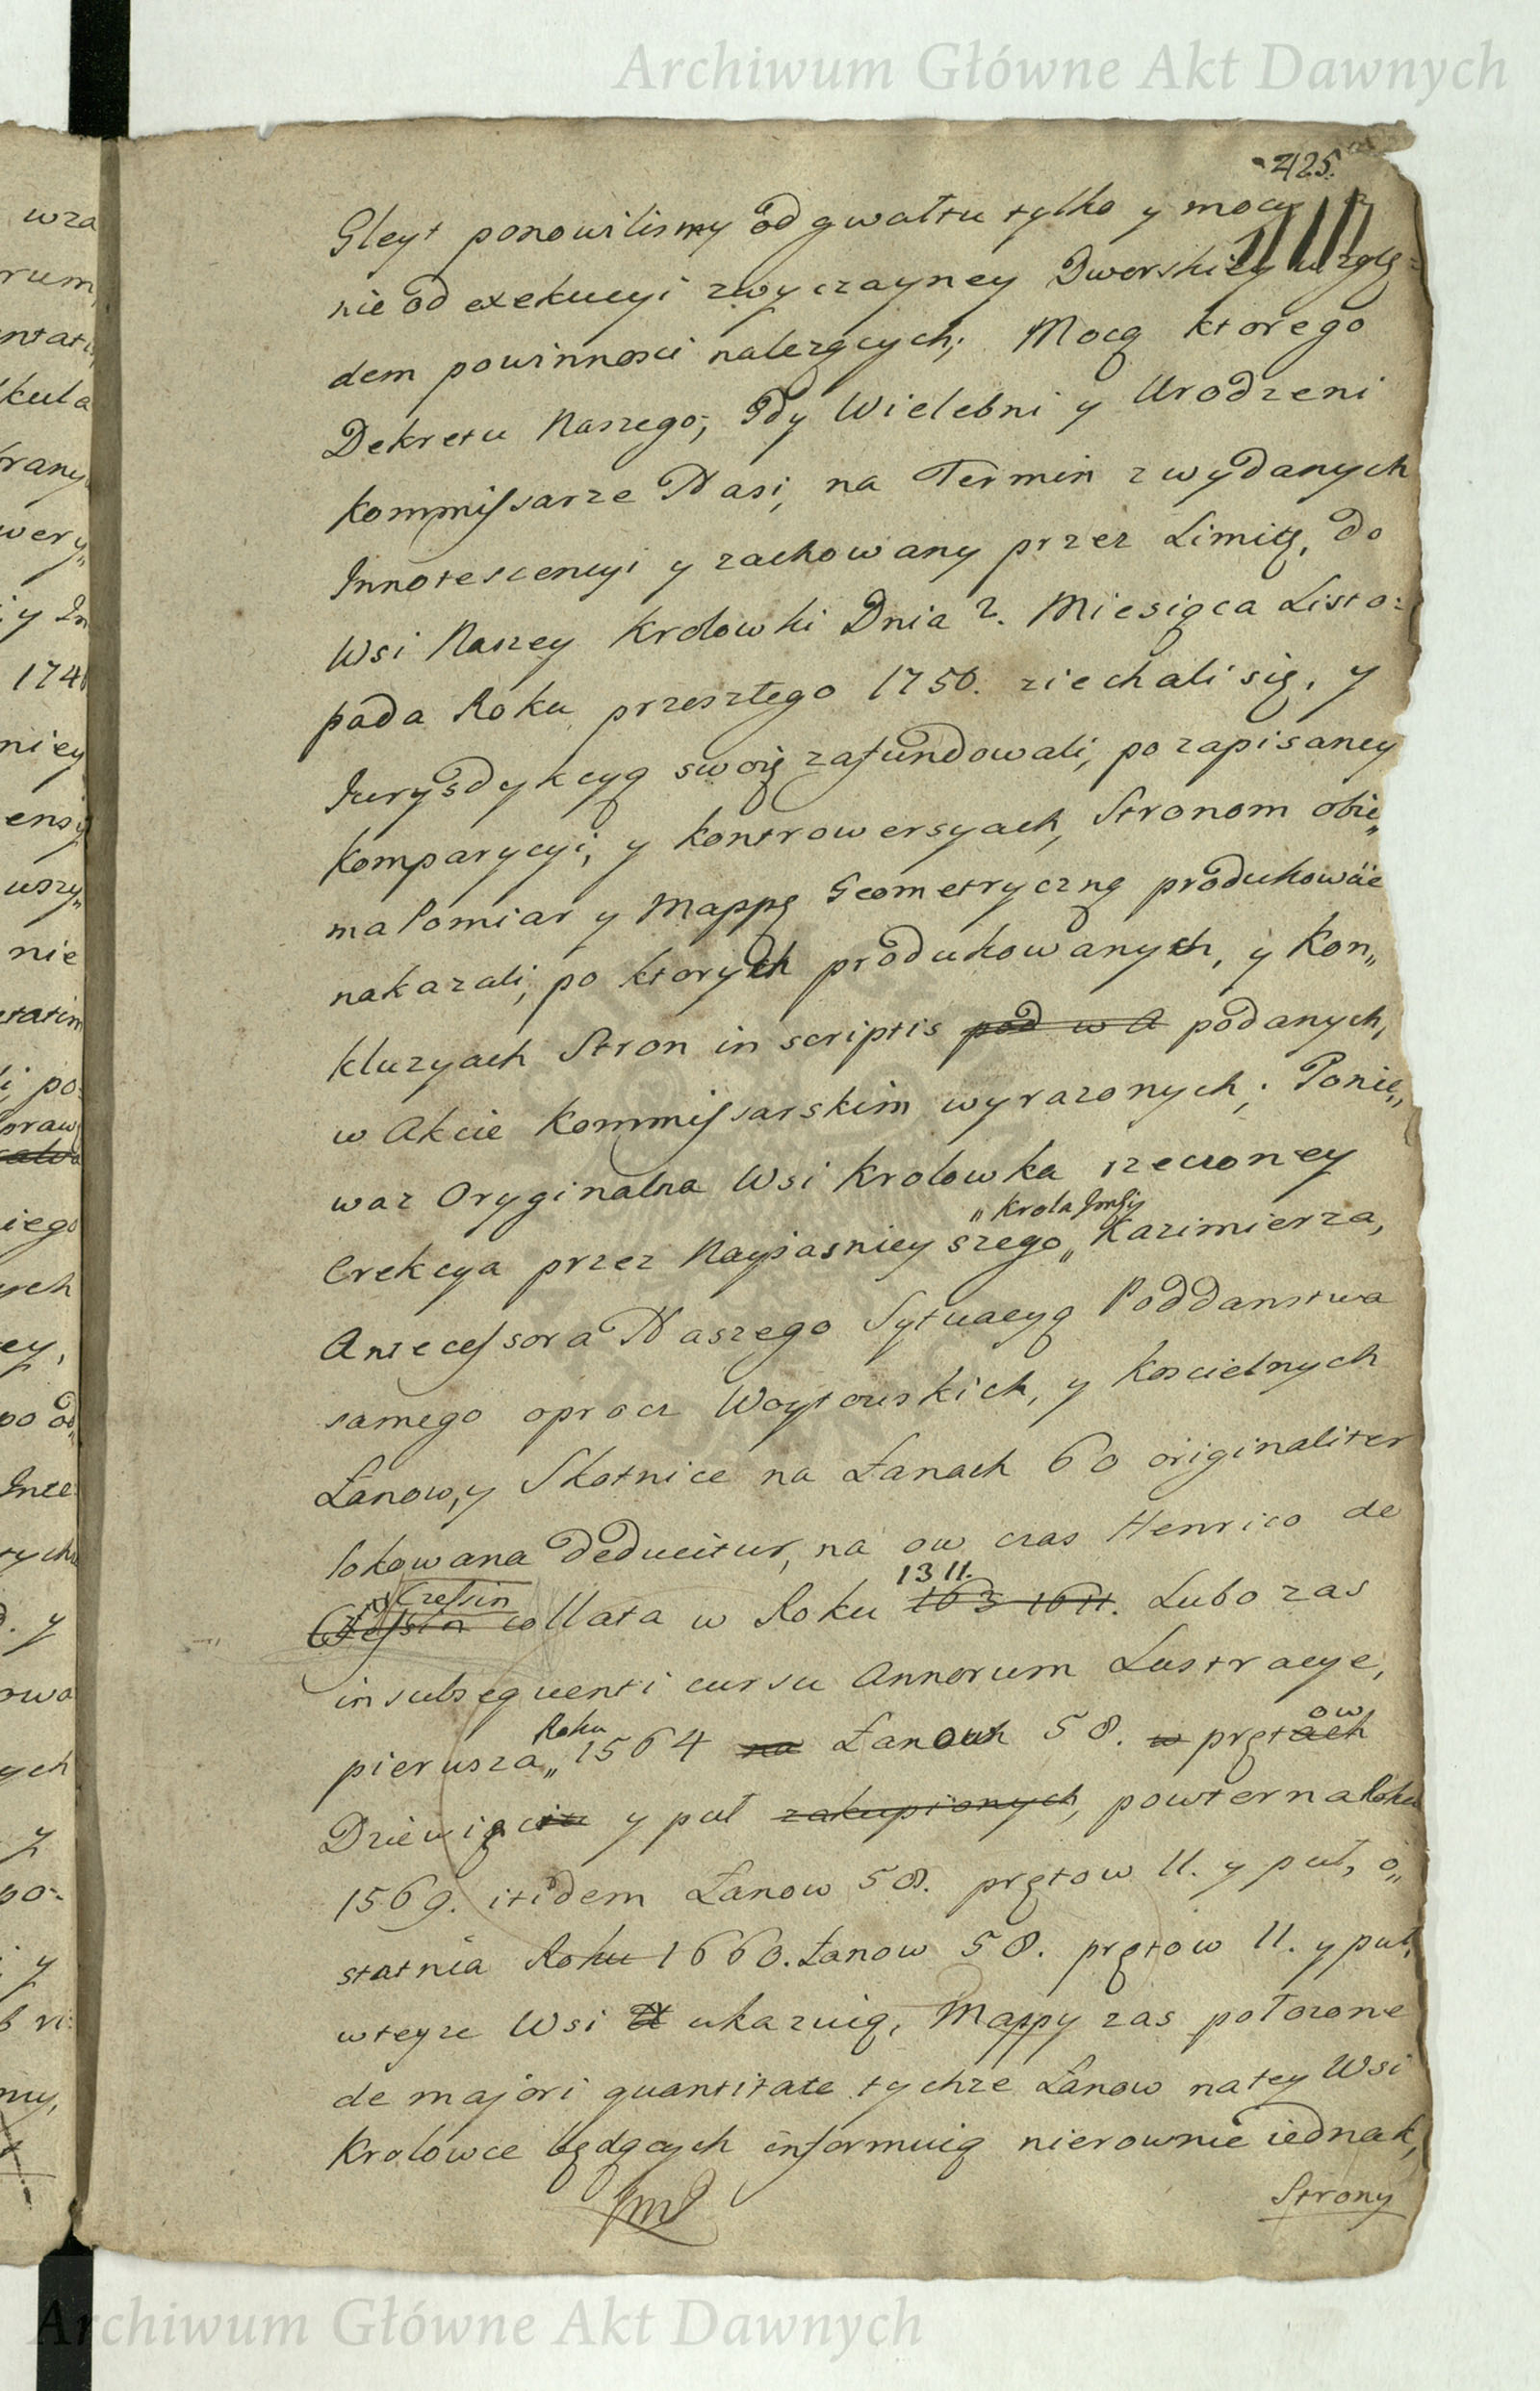 Archiwum Główne Akt Dawnych
425.
Gleyt ponowilismy od gwałtu tylko y mocy
nie od exekucyi zwyczayney Dworskiey wzglę=
dem powinnosci nalezących; Mocą ktorego
Dekretu Naszego, Gdy Wielebni y Urodzeni
Kommissarze Nasi, na Termin z wydanych
Innotescencyi y zachowany przez Limitę, do
Wsi Naszey Krolowki Dnia 2. Miesiąca Listo=
pada Roku przeszłego 1750. ziechali się, y
Jurysdykcyą swoię zafundowali, po zapisaney
Komparycyi, y kontrowersyach, Stronom obie„
ma Pomiar y Mappę Geometryczną produkować
nakazali, po ktorych produkowanych, y Kon„
kluzyach Stron in scriptis pod w A podanych,
w Akcie Kommissarskim wyrazonych; Ponie„
waz Oryginalna Wsi Krolowka rzeczoney
„Krola Jmsci
Erekcya przez Nayjasnieyszego„ Kazimierza,
Antecessora Naszego Sytuacyą Poddanstwa
samego oprocz Woytowskich, y Koscielnych
Łanow, y Skotnice na Łanach 60 originaliter
lokowana deducitur, na ow czas Henrico de
Czessin 1311.
collata w Roku 163 1611. Lubo zas
in subsequenti cursu Annorum Lustracye,
Roku ow
pierwsza„ 1564 na Łanow 58. w prętach
Dziewięciu y puł zakupionych, powterna Roku
1569. itidem Łanow 58. prętow 11. y puł, o„
statnia Roku 1660. Łanow 58. prętow 11. y puł,
wteyze Wsi ukazuią, Mappy zas połozone
de majori quantitate tychze Łanow na tey Wsi
Krolowce będących informuią nierownie iednak,
Strony
Archiwum Główne Akt Dawnych